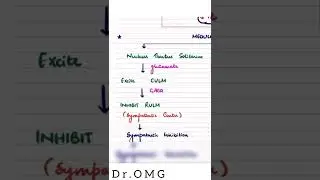 ★ MEDULL
Nucleus Tractus Solitarius
glutamate
Excite
Excite CVLM
GABA
INHIBIT RVLM
(Sympathetic Center)
INHIBIT
Sympathetic Inhibition
(Sympat
Dr.OMG